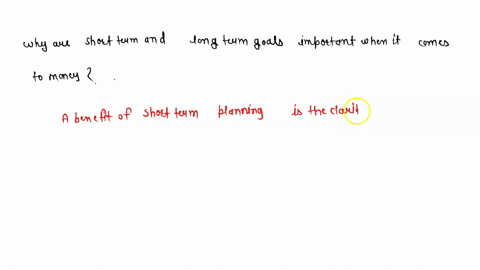 why are short term and long term goals important when it comes
to money ? .
A benefit of short term planning is the clarit